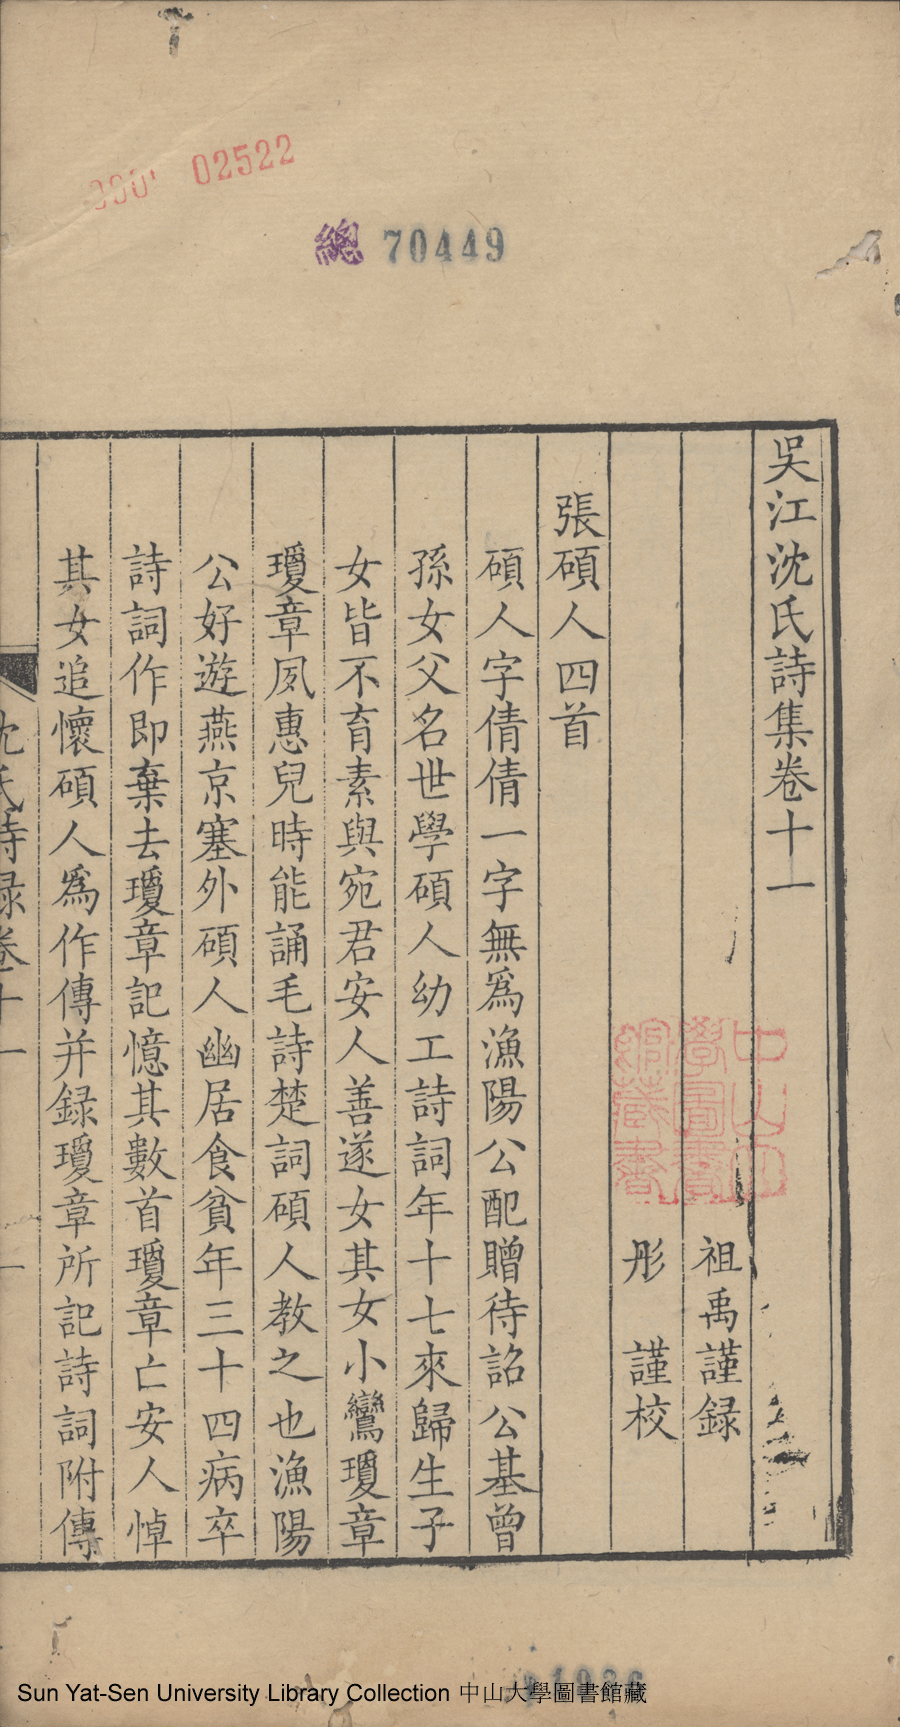 02522
總 70449
吳江沈氏詩集卷十一
祖禹謹録
彤 謹校
張碩人四首
碩人字倩倩一字無爲漁陽公配贈待詔公基曾
孫女父名世學碩人幼工詩詞年十七來歸生子
女皆不育素與宛君安人善遂女其女小鸞瓊章
瓊章夙惠兒時能誦毛詩楚詞碩人教之也漁陽
公好遊燕京塞外碩人幽居食貧年三十四病卒
詩詞作即棄去瓊章記憶其數首瓊章亡安人悼
其女追懷碩人爲作傳并録瓊章所記詩詞附傳
沈氏詩録卷十一
一
中山大學圖書館藏書
Sun Yat-Sen University Library Collection 中山大學圖書館藏